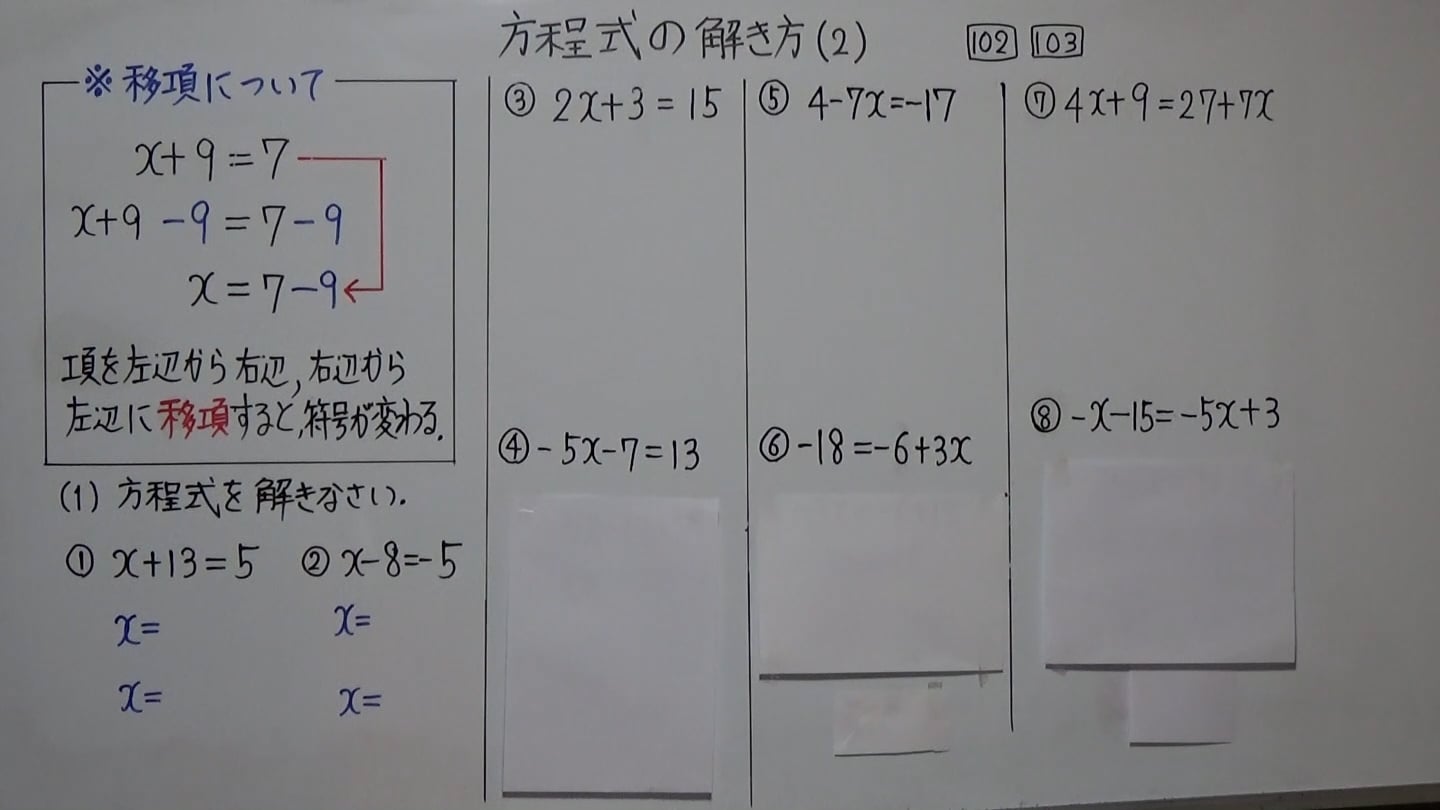 方程式の解き方(2)
102 103
※移項について
x+9=7
x+9-9=7-9
x=7-9
項を左辺から右辺,右辺から
左辺に移項すると,符号が変わる.
(1) 方程式を解きなさい.
① x+13=5
x=
x=
② x-8=-5
x=
x=
③ 2x+3=15
④ -5x-7=13
⑤ 4-7x=-17
⑥ -18=-6+3x
⑦ 4x+9=27+7x
⑧ -x-15=-5x+3